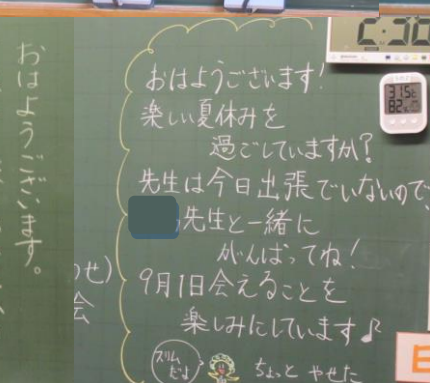 おはようございます。
おはようございます!
楽しい夏休みを
過ごしていますか?
先生は今日出張でいないので、
先生と一緒に
がんばってね!
9月1日会えることを
楽しみにしています♪
スリム
だよ
ちょっと やせた
せ)
会
31.5℃
82%